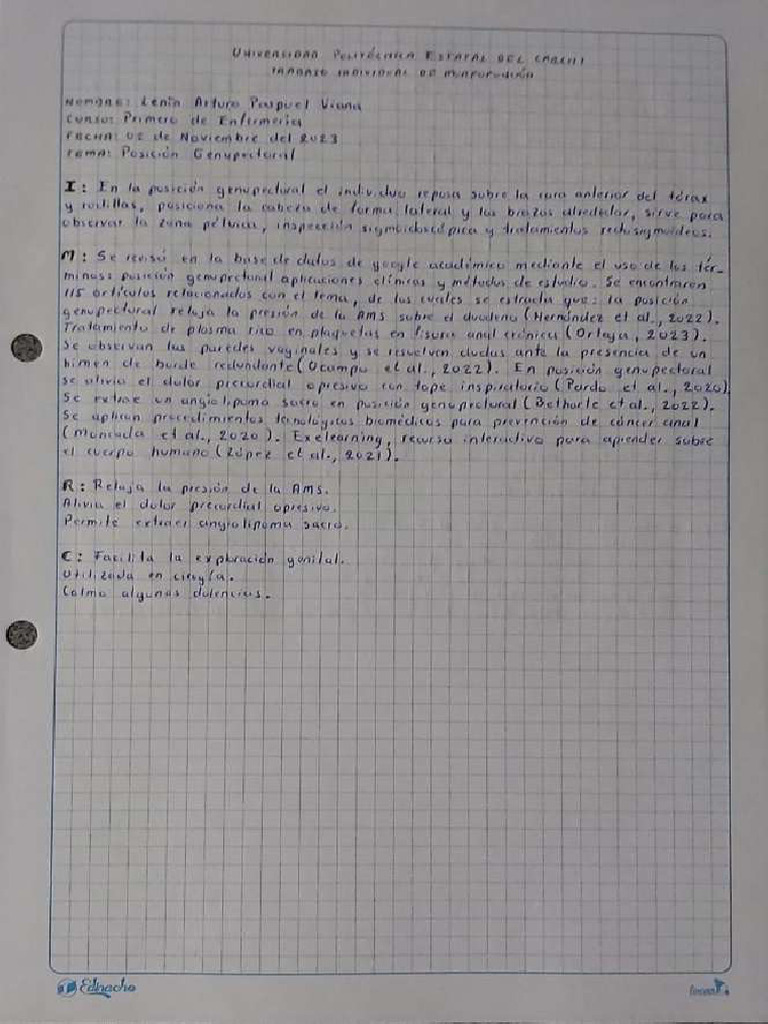 UNIVERSIDAD POLITÉCNICA ESTATAL DEL CARCHI
TRABAJO INDIVIDUAL DE MORFOFUNCIÓN
NOMBRE: Lenin Arturo Paspuel Viana
CURSO: Primero de Enfermería
FECHA: 02 de Noviembre del 2023
TEMA: Posición Genupectoral
I: En la posición genupectoral el individuo reposa sobre la cara anterior del tórax
y rodillas, posiciona la cabeza de forma lateral y los brazos alrededor, sirve para
observar la zona pélvica, inspección sigmoidoscópica y tratamientos rectosigmoideos.
M: Se revisó en la base de datos de google académico mediante el uso de los tér-
minos: posición genupectoral aplicaciones clínicas y métodos de estudio. Se encontraron
115 artículos relacionados con el tema, de los cuales se extrada que: la posición
genupectoral relaja la presión de la AMS sobre el duodeno (Hernández et al., 2022).
Tratamiento de plasma rico en plaquetas en fisura anal crónica (Ortega, 2023).
Se observan las paredes vaginales y se resuelven dudas ante la presencia de un
himen de borde redundante (Ocampo et al., 2022). En posición genupectoral
se alivia el dolor precordial opresivo con tope inspiratorio (Pardo et al., 2020).
Se extrae un angiolipoma sacro en posición genupectoral (Betharte et al., 2022).
Se aplican procedimientos tecnológicos biomédicos para prevención de cáncer anal
(Moncada et al., 2020). Exelearning, recurso interactivo para aprender sobre
el cuerpo humano (López et al., 2021).
R: Relaja la presión de la AMS.
Alivia el dolor precordial opresivo.
Permite extraer angiolipoma sacro.
C: Facilita la exploración genital.
Utilizada en cirugía.
Calma algunas dolencias.
Ednacho